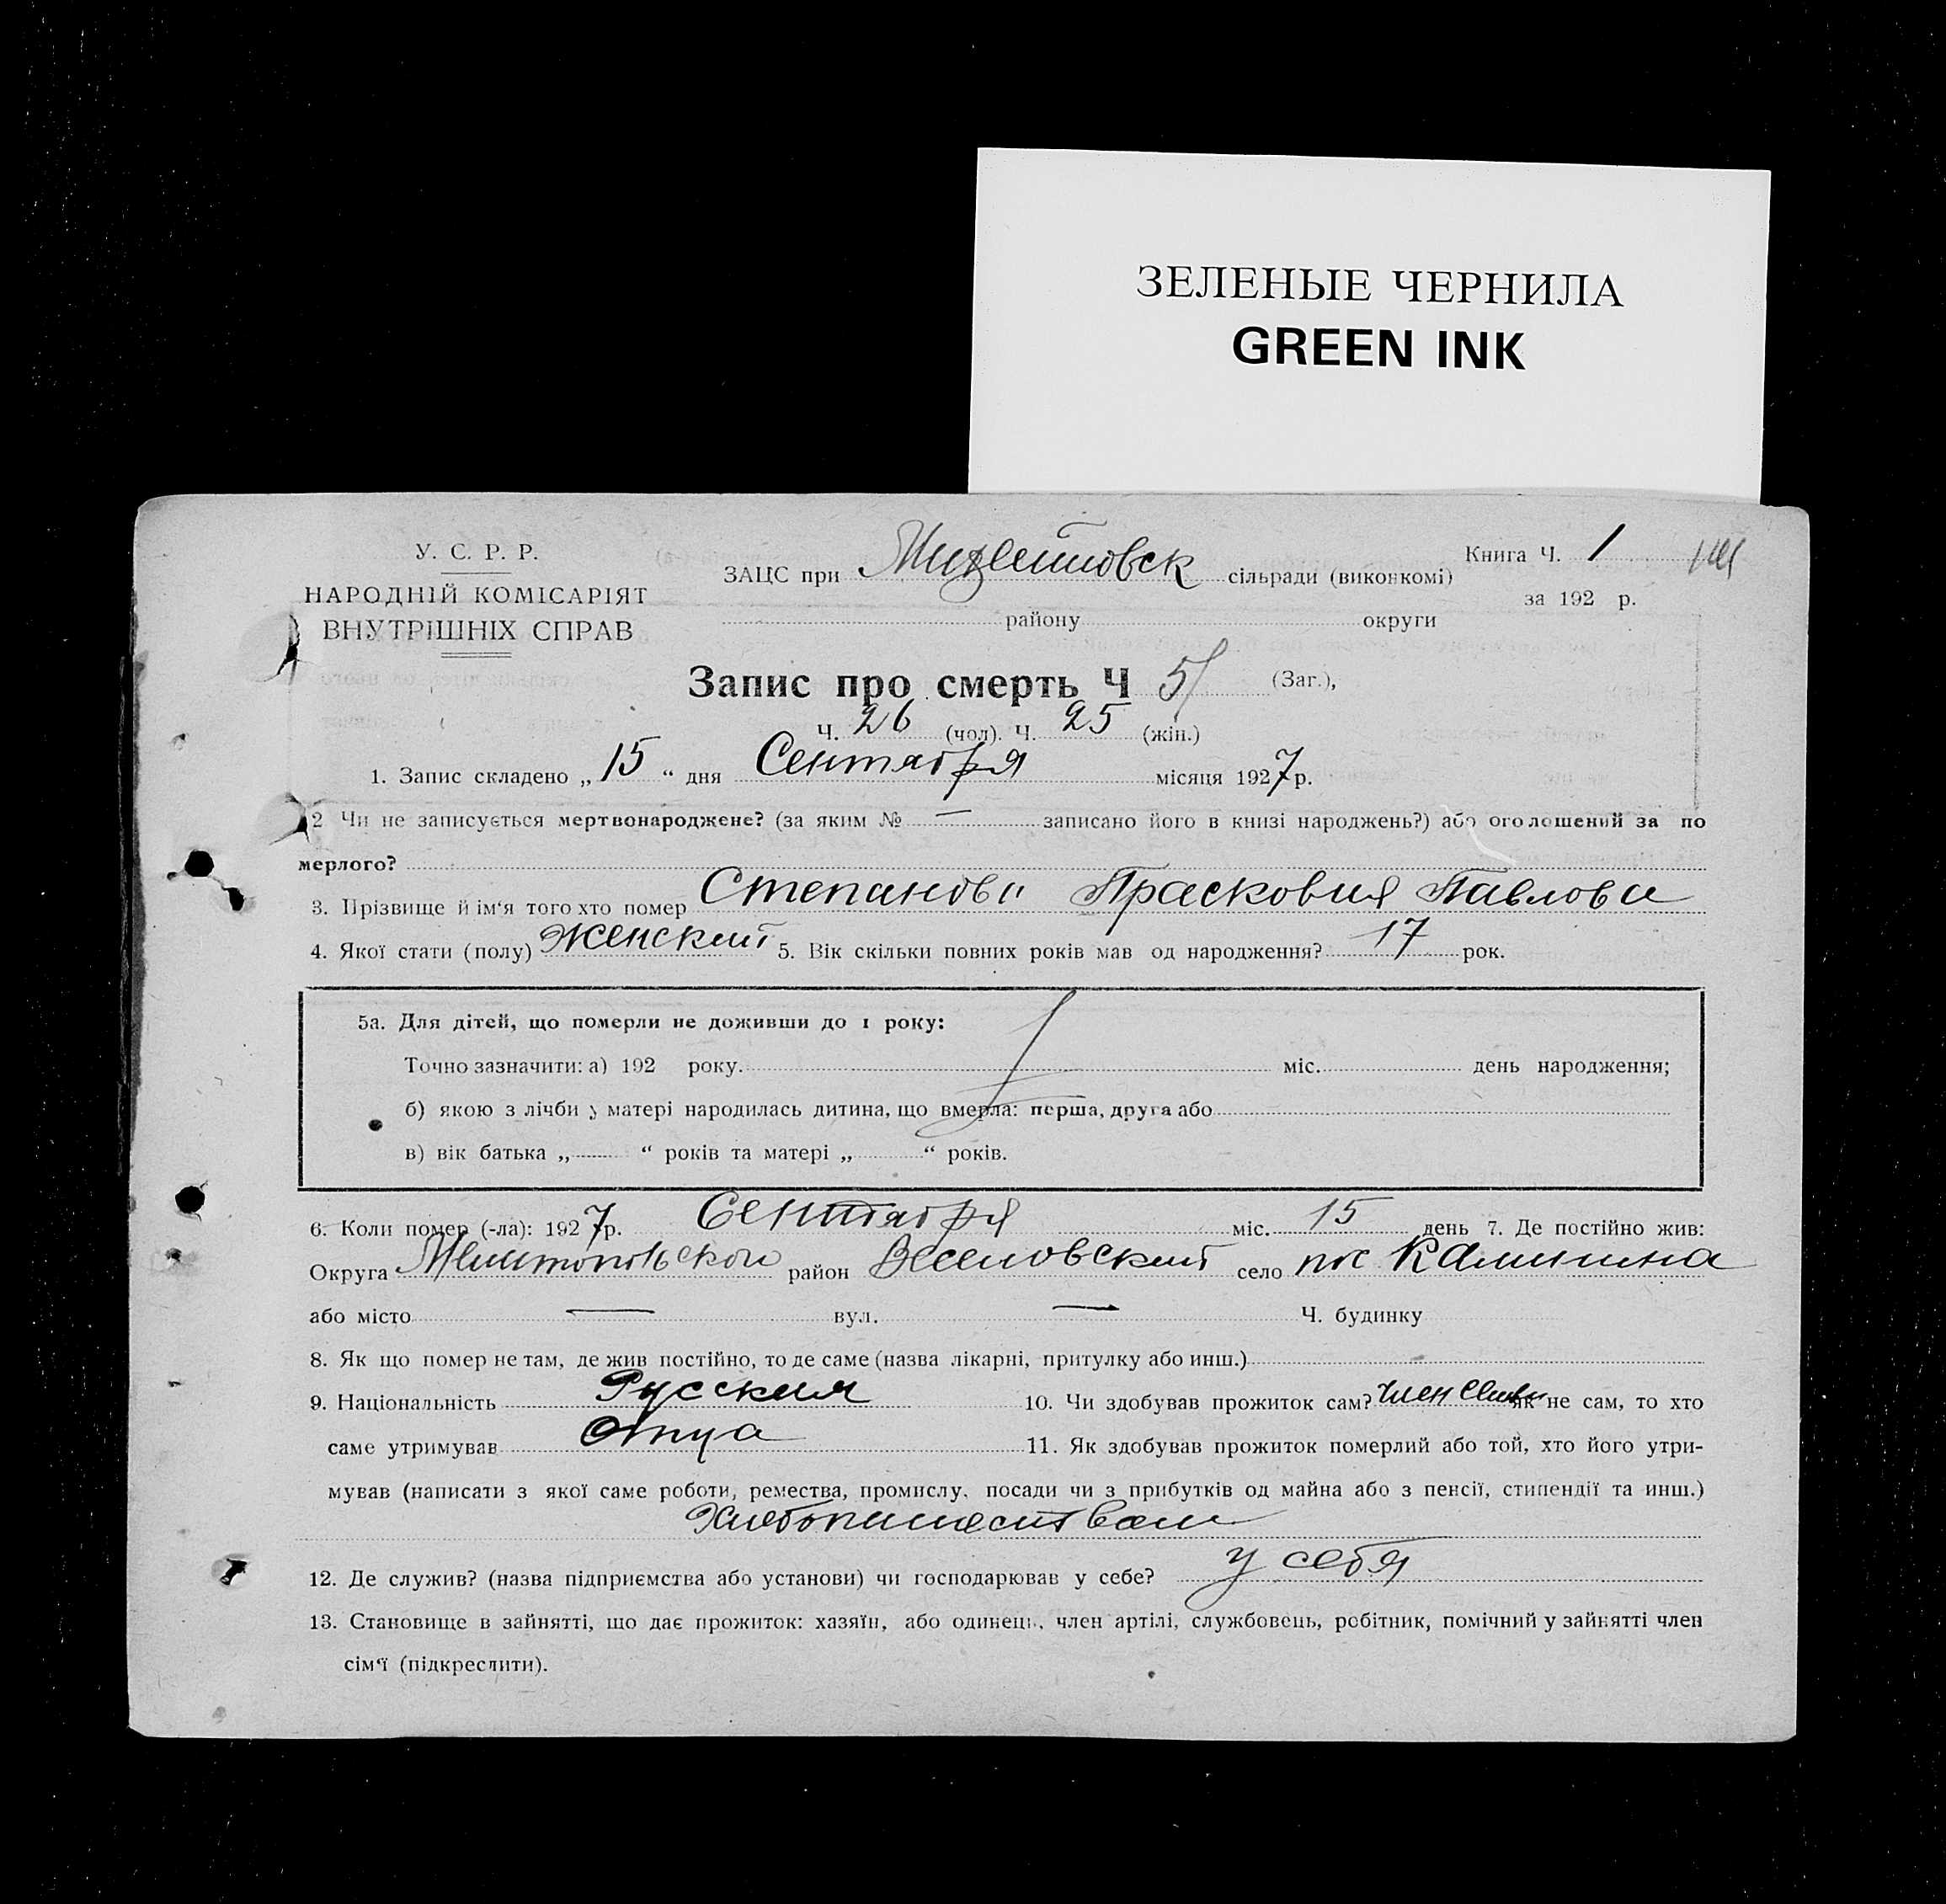 ЗЕЛЕНЫЕ ЧЕРНИЛА
GREEN INK
У. С. Р. Р.
НАРОДНІЙ КОМІСАРІЯТ
ВНУТРІШНІХ СПРАВ
ЗАЦС при сільради (виконкомі)
району округи
Книга Ч. 1
за 192 р.
Запис про смерть Ч 51 (Заг.),
Ч. 26 (чол). Ч. 25 (жін.)
1. Запис складено „ 15 “ дня Сентября місяця 1927 р.
2 Чи не записується мертвонароджене? (за яким № — записано його в книзі народжень?) або оголошений за по
мерлого?
3. Прізвище й ім'я того хто помер Степанова Прасковия Павлова
4. Якої стати (полу) Женский 5. Вік скільки повних років мав од народження? 17 рок.
5а. Для дітей, що померли не доживши до 1 року:
Точно зазначити: а) 192 року. міс. день народження;
б) якою з лічби у матері народилась дитина, що вмерла: перша, друга або
в) вік батька „ “ років та матері „ “ років.
6. Коли помер (-ла): 1927 р. Сентября міс. 15 день 7. Де постійно жив:
Округа Мелитопольской район Веселовский село пос Калинина
або місто — вул. — Ч. будинку
8. Як що помер не там, де жив постійно, то де саме (назва лікарні, притулку або инш.)
9. Національність Русския 10. Чи здобував прожиток сам? член семьи як не сам, то хто
саме утримував Отца 11. Як здобував прожиток померлий або той, хто його утри-
мував (написати з якої саме роботи, ремества, промислу, посади чи з прибутків од майна або з пенсії, стипендії та инш.)
Хлебопашеством
12. Де служив? (назва підприємства або установи) чи господарював у себе? у себя
13. Становище в зайнятті, що дає прожиток: хазяїн, або одинець, член артілі, службовець, робітник, помічний у зайнятті член
сім'ї (підкреслити).